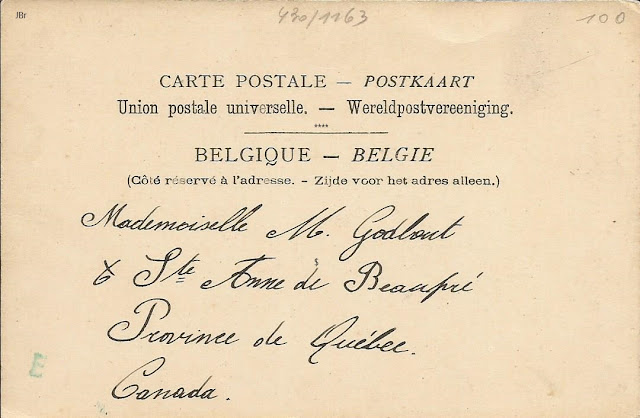 JBr
430/1163
100
CARTE POSTALE — POSTKAART
Union postale universelle. — Wereldpostvereeniging.
****
BELGIQUE — BELGIE
(Côté réservé à l'adresse. - Zijde voor het adres alleen.)
Mademoiselle M. Godbout
à Ste Anne de Beaupré
Province de Québec.
Canada.
E